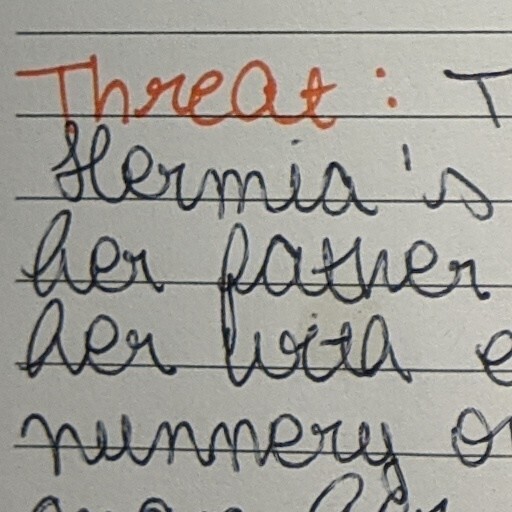 Threat: T
Hermia's
her father
her with e
nunnery or
her